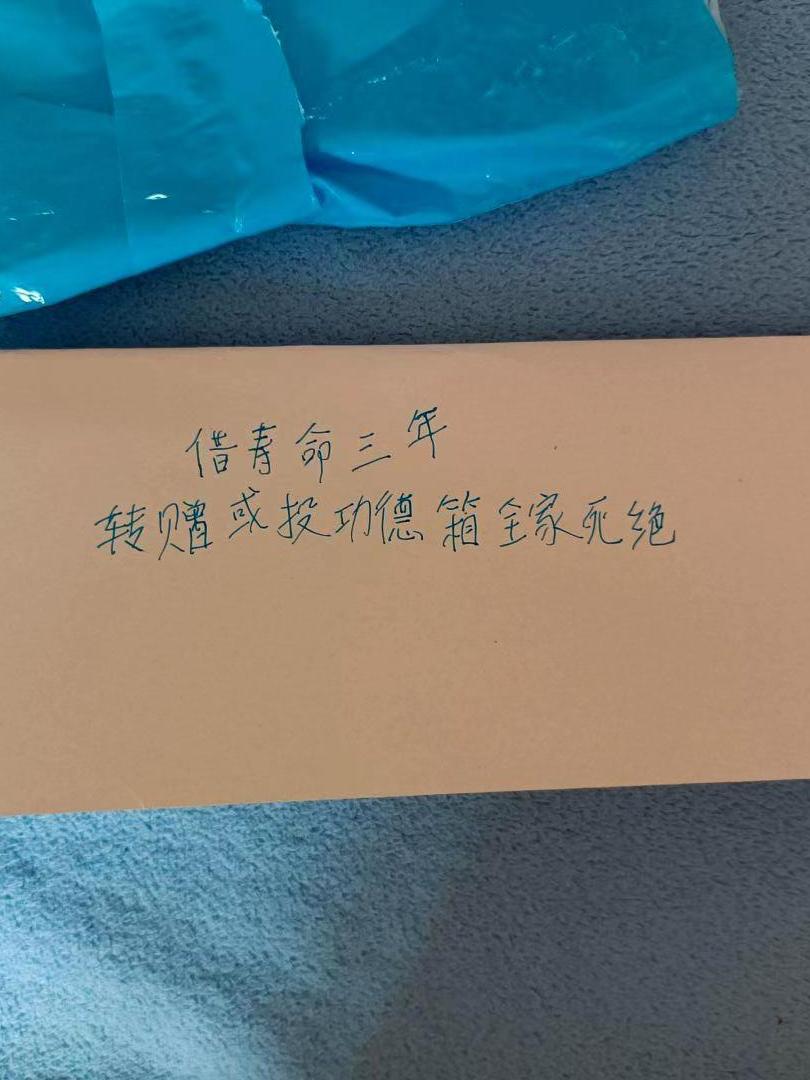 借寿命三年
转赠或投功德箱全家死绝